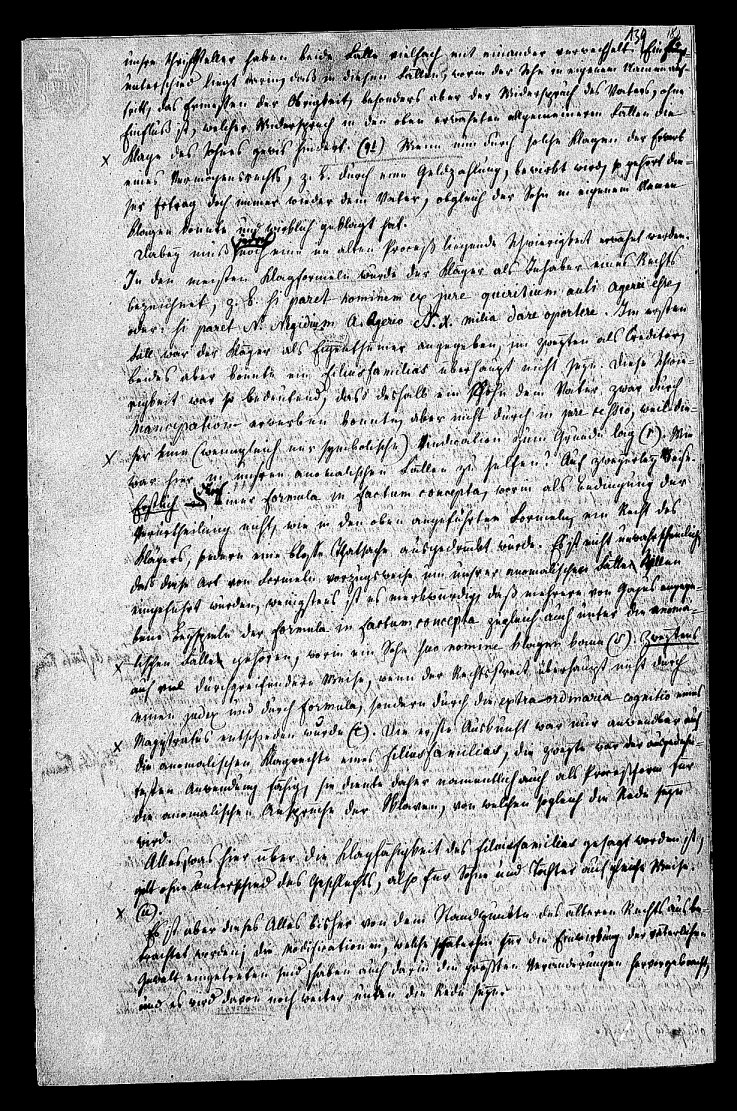 139
unsre Schriftsteller haben beide Fälle vielfach mit einander verwechselt. Ein
Unterschied liegt darin, daß in diesen Fällen, worin der Sohn in eigenem Namen auf-
tritt, das Ermessen der Obrigkeit, besonders aber der Widerspruch des Vaters, ohne
Einfluß ist, welcher Widerspruch in den oben erwähnten allgemeineren Fällen die
Klage des Sohnes gewis hindert. (q1) Wenn nun durch solche Klagen der Erwerb
eines Vermögensrechts, z. B. durch eine Geldzahlung, bewirkt wird, so gehört die-
ser Ertrag doch immer wieder dem Vater, obgleich der Sohn in eigenem Namen
klagen konnte und wirklich geklagt hat.
Dabey muß noch eine im alten Prozeß liegende Schwierigkeit erwähnt werden.
In den meisten Klagformeln wurde der Kläger als Inhaber eines Rechts
bezeichnet, z. B. si paret hominem ex jure quiritium Auli Agerii esse,
oder: si paret N. Negidium A. Agerio S. X. milia dare oportere. Im ersten
Fall war der Kläger als Eigenthümer angegeben, im zweyten als Creditor,
beides aber konnte ein filiusfamilias überhaupt nicht seyn. Diese Schwie-
rigkeit war so bedeutend, daß deshalb ein Sohn dem Vater zwar durch
mancipation erwerben konnte, aber nicht durch in jure cessio, weil die-
ser eine (wenngleich nur symbolische) Vindication zum Grunde lag (r). Wie
war hier in unsren anomalischen Fällen zu helfen? Auf zweyerley Weise.
Erstlich durch eine formula in factum concepta, worin als Bedingung der
Verurtheilung nicht, wie in den oben angeführten Formeln, ein Recht des
Klägers, sondern eine bloße Thatsache ausgedrückt wurde. Es ist nicht unwahrscheinlich,
daß diese Art von Formeln vorzugsweise um unsrer anomalischen Fälle willen
eingeführt wurden, wenigstens ist es merkwürdig, daß mehrere von Gajus angege-
bene Beyspiele der formula in factum concepta zugleich auch unter die anoma-
lischen Fälle gehören, worin ein Sohn suo nomine klagen kann (s). Zweytens
auf viel durchgreifendere Weise, wenn der Rechtsstreit überhaupt nicht durch
einen judex und durch formula, sondern durch die extraordinaria cognitio eines
Magistratus entschieden wurde (t). Die erste Auskunft war nur anwendbar auf
die anomalischen Klagrechte eines filiusfamilias, die zweyte war der ausgedehn-
testen Anwendung fähig, sie diente daher namentlich auch als Prozeßform für
die anomalischen Ansprüche der Sklaven, von welchen sogleich die Rede seyn
wird.
Alles was hier über die Klagfähigkeit des filiusfamilias gesagt worden ist,
gilt ohne Unterschied des Geschlechts, also für Söhne und Töchter auf gleiche Weise.
(u).
Es ist aber dieses Alles bisher von dem Standpunkte des älteren Rechts aus be-
trachtet worden; die Modificationen, welche späterhin für die Einwirkung der väterlichen
Gewalt eingetreten sind, haben auch darin die größten Veränderungen hervorgebracht,
und es wird davon noch weiter unten die Rede seyn.